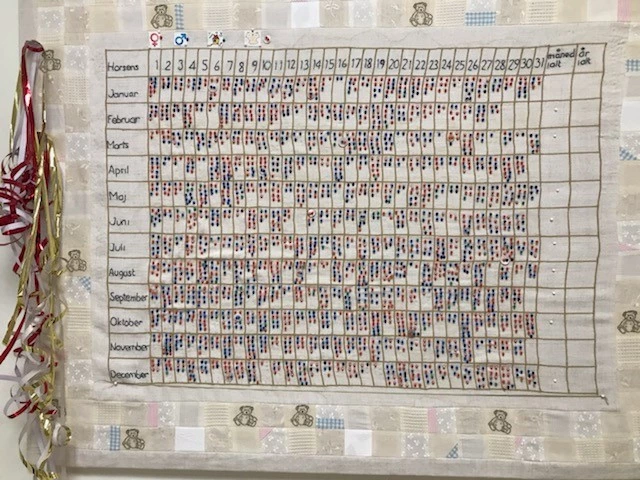 Horsens 1 2 3 4 5 6 7 8 9 10 11 12 13 14 15 16 17 18 19 20 21 22 23 24 25 26 27 28 29 30 31 måned ialt år ialt
Januar
Februar
Marts
April
Maj
Juni
Juli
August
September
Oktober
November
December